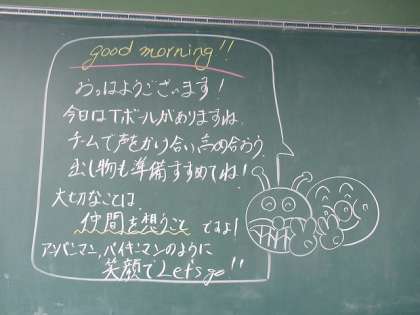 good morning!!
おっはようございます！
今日はTボールがありますね。
チームで声をかけ合い、高め合おう。
出し物も準備すすめてね！
大切なことは、
仲間を想うこと ですよ！
アンパンマン、バイキンマンのように
笑顔でLet's go!!